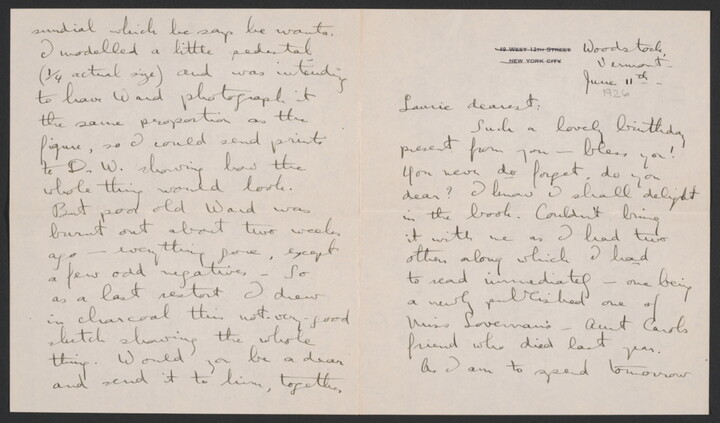 sundial which he says he wants.
I modelled a little pedestal
(1/4 actual size) and was intending
to have Ward photograph it
the same proportion as the
figure, so I could send prints
to D. W. showing how the
whole thing would look.
But poor old Ward was
burnt out about two weeks
ago — everything gone, except
a few odd negatives — So
as a last resort I drew
in charcoal this not-very-good
sketch showing the whole
thing. Would you be a dear
and send it to him, together
19 WEST 12TH STREET
NEW YORK CITY
Woodstock,
Vermont—
June 11th—
1926
Laurie dearest:
Such a lovely birthday
present from you — bless you!
You never do forget, do you
dear? I know I shall delight
in the book. Couldn't bring
it with me as I had two
others along which I had
to read immediately — one being
a newly published one of
Miss Loveman's — Aunt Carol's
friend who died last year.
As I am to spend tomorrow